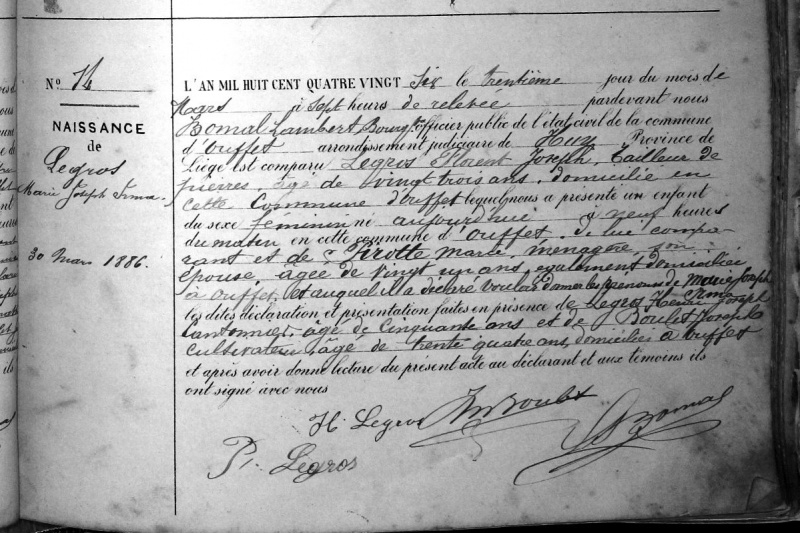 No 14
NAISSANCE
de
Legros
Marie Joseph Irma.
30 Mars 1886.
L'AN MIL HUIT CENT QUATRE VINGT Six le trentième jour du mois de
Mars à Sept heurs de relevée pardevant nous
Bomal Lambert, Bourgt officier public de l'état civil de la commune
d'Ouffet arrondissement judiciaire de Huy Province de
Liège est comparu Legros Florent Joseph, Tailleur de
pierres, âgé de vingt trois ans, domicilié en
cette commune d'Ouffet lequel nous a présenté un enfant
du sexe féminin né aujourd'hui à neuf heures
du matin en cette commune d'Ouffet, de lui compa-
rant et de Pirotte Marie, ménagère, son
épouse, âgée de vingt un ans, également domiciliée
à Ouffet, et auquel il a déclaré vouloir donner les prénoms de Marie Joseph
Irma
les dites déclaration et présentation faites en présence de Legros Henri Joseph
Cantonnier, âgé de cinquante ans et de Boulet Joseph
cultivateur, âgé de trente quatre ans, domiciliés à Ouffet
et après avoir donné lecture du présent acte au déclarant et aux témoins ils
ont signé avec nous
H. Legros
Boulet
Bomal
Legros